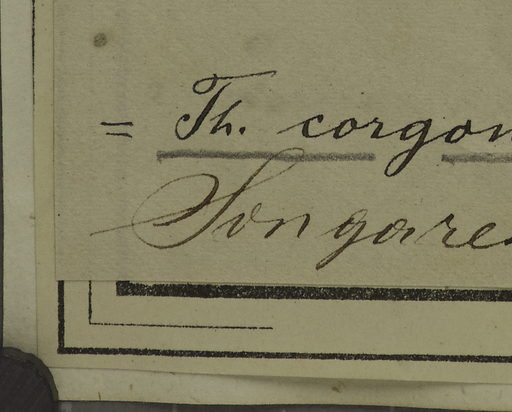 = Th. corgon
Songares